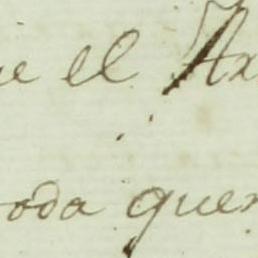 ue el Ax
oda quer